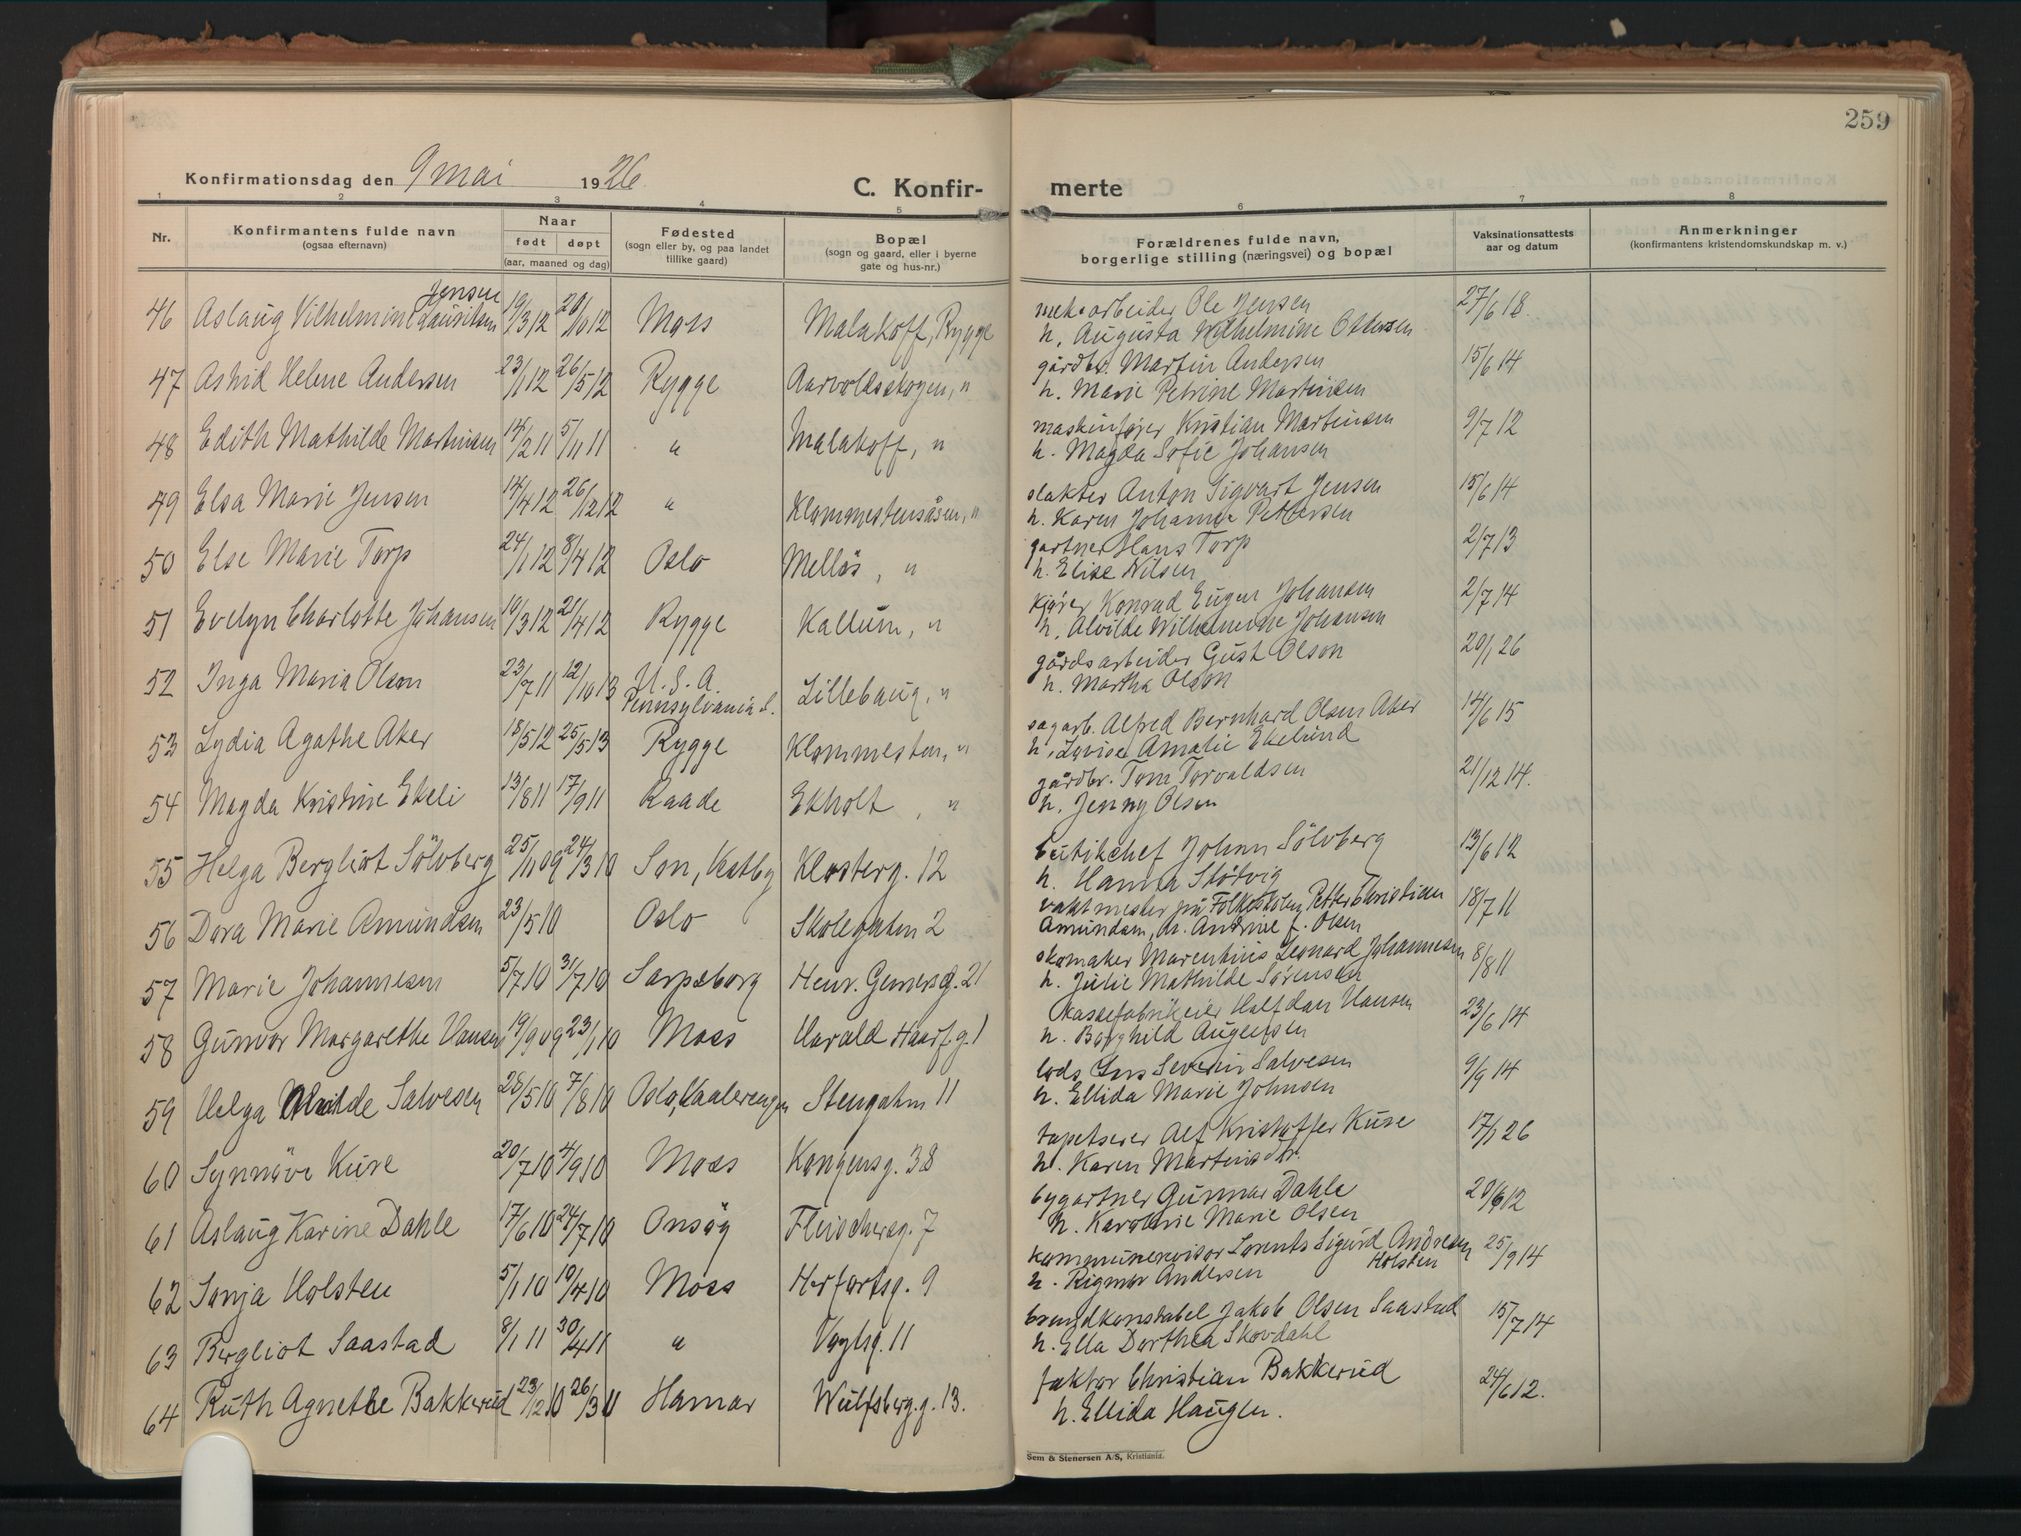 259
Konfirmationsdag den 9 mai 1926
C. Konfir- merte
1 2 3 4 5 6 7 8
Nr.
Konfirmantens fulde navn
(ogsaa efternavn)
Naar
født døpt
(aar, maaned og dag)
Fødested
(sogn eller by, og paa landet
tillike gaard)
Bopæl
(sogn og gaard, eller i byerne
gate og hus-nr.)
Forældrenes fulde navn,
borgerlige stilling (næringsvei) og bopæl
Vaksinationsattests
aar og datum
Anmerkninger
(konfirmantens kristendomskundskap m. v.)
Jensen
46 Aslaug Vilhelmine Lauritsen 19/3 12 20/10 12 Moss Malakoff, Rygge mek. arbeider Ole Jensen 27/6 18.
h. Augusta Wilhelmine Ottersen
47 Astrid Helene Andersen 23/1 12 26/5 12 Rygge Aarvoldsskogen, " gårdbr. Martin Andersen 15/6 14
h. Marie Petrine Martinsen
48 Edith Mathilde Martinsen 14/2 11 5/11 11 " Malakoff, " maskinfører Kristian Martinsen 9/7 12
h. Magda Sofie Johansen
49 Elsa Marie Jensen 14/4 12 26/12 12 " Klommestensåsen, " slakter Anton Sigvart Jensen 15/6 14
h. Karen Johanne Pettersen
50 Else Marie Torp 24/1 12 8/4 12 Oslo Mellös, " gartner Hans Torp 2/7 13
h. Elise Nilsen
51 Evelyn Charlotte Johansen 19/3 12 21/4 12 Rygge Kallum, " kjører Konrad Eugen Johansen 2/7 14
h. Alvilde Wilhelmine Johansen
52 Inga Maria Olson 23/7 11 12/10 13 U. S. A. Pennsylvania S. Lillebaug, " gårdsarbeider Gust Olson 20/1 26
h. Martha Olson
53 Lydia Agathe Aker 18/5 12 25/5 13 Rygge Klommesten, " sagarb. Alfred Bernhard Olsen Aker 14/6 15
h. Lovise Amalie Ekelund
54 Magda Kristine Ekeli 13/8 11 17/9 11 Raade Ekholt, " gårdbr. Tom Torvaldsen 21/12 14.
h. Jenny Olsen
55 Helga Bergliot Sölvberg 25/11 09 24/3 10 Son, Vestby Klosterg. 12 butikchef Johan Sölvberg 13/6 12
h. Hanna Stötvig
56 Dora Marie Amundsen 23/5 10 Oslo Skolegaten 2 vaktmester på Folkeskolen Petter Christian 18/7 11
Amundsen, h. Andrine f. Olsen
57 Marie Johannesen 5/7 10 31/7 10 Sarpsborg Henr. Gernersg. 21 skomaker Marentius Leonard Johannesen 8/8 11
h. Julie Mathilde Sørensen
58 Gunvor Margarethe Hansen 19/9 09 23/1 10 Moss Harald Haarf.g. 1 kassefabrikeier Halfdan Hansen 23/6 14
h. Borghild Augensen
59 Helga Salvesen 28/5 10 7/8 10 Oslo, Vaalerengen Stengaten 11 lods Jens Severin Salvesen 9/9 14
h. Ellida Marie Johnsen
60 Synnöve Kure 20/7 10 4/9 10 Moss Kongensg. 38 tapetserer Alf Kristoffer Kure 17/1 26
h. Karen Martinsdtr.
61 Aslaug Karine Dahle 17/6 10 24/7 10 Onsöy Fleischersg. 7 bygartner Gunnar Dahle 20/6 12
h. Karoline Marie Olsen
62 Sonja Holsten 5/1 10 10/4 10 Moss Herfortsg. 9 kommunerevisor Lorents Sigurd Andresen Holsten 25/9 14
h. Rigmor Andersen
63 Bergliot Saastad 8/1 11 30/4 11 " Voglsg. 11 brandkonstabel Jakob Olsen Saastad 15/7 14
h. Ella Dorthea Skovdahl
64 Ruth Agnethe Bakkerud 23/12 10 26/3 11 Hamar Wulfsberg.g. 13. faktor Christian Bakkerud 24/6 12.
h. Ellida Haugen.
Sem & Stenersen A/S, Kristiania.